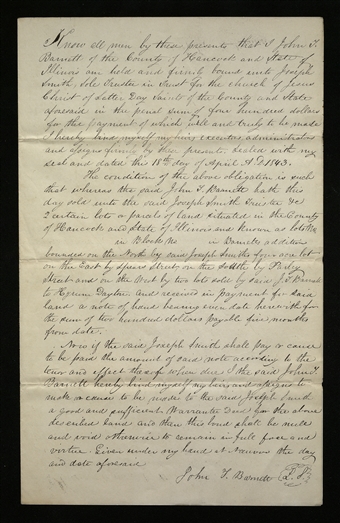 Know all men by these presents that I John T.
Barnett of the County of Hancock and State of
Illinois am held and firmly bound unto Joseph
Smith, Sole Trustee in Trust for the church of Jesus
Christ of Latter Day Saints of the County and State
aforesaid in the penal sum of four hundred dollars
for the payment of which well and truly to be made
I hereby bind myself my heirs executors, administrators
and assigns firmly by these presents, sealed with my
seal and dated this 18th day of April A.D. 1843.
The condition of the above obligation is such
that whereas the said John T. Barnett hath this
day sold unto the said Joseph Smith Trustee &c
2 certain lots or parcels of land situated in the County
of Hancock and State of Illinois and known as lots No
in Block No in Barnetts addition
bounded on the North by said Joseph Smiths four acre lot
on the East by Spears Street, on the South by
Street and on the West by two lots sold by said J. T. Barnett
to Hyrum and received in payment for said
land a note of hand bearing even date herewith for
the sum of two hundred dollars payable five months
from date.
Now if the said Joseph Smith shall pay or cause
to be paid the amount of said note according to the
tenor and effect thereof when due I the said John T.
Barnett hereby bind myself my heirs and assigns to
make or cause to be made to the said Joseph Smith
a good and sufficient Warrantee Deed for the above
described land and then this bond shall be null
and void otherwise to remain in full force and
virtue. Given under my hand at Nauvoo the day
and date aforesaid
John T. Barnett L.S.